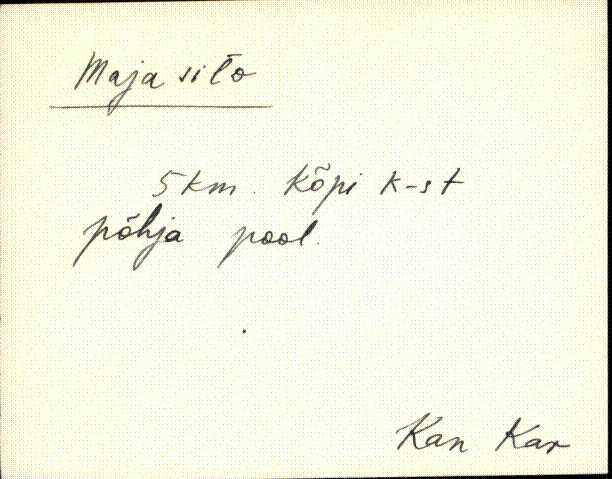 Maja silo
5 km. Kõpi k-st
põhja pool.
Kan Kar